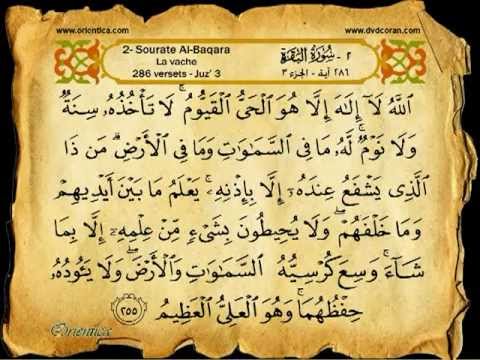 www.orientica.com
www.dvdcoran.com
2- Sourate Al-Baqara
La vache
286 versets - Juz' 3
٢ - سُورَةُ البَقَرَة
٢٨٦ آية - الجزء ٣
ٱللَّهُ لَآ إِلَٰهَ إِلَّا هُوَ ٱلْحَىُّ ٱلْقَيُّومُ ۚ لَا تَأْخُذُهُۥ سِنَةٌ
وَلَا نَوْمٌ ۚ لَّهُۥ مَا فِى ٱلسَّمَٰوَٰتِ وَمَا فِى ٱلْأَرْضِ ۗ مَن ذَا
ٱلَّذِى يَشْفَعُ عِندَهُۥٓ إِلَّا بِإِذْنِهِۦ ۚ يَعْلَمُ مَا بَيْنَ أَيْدِيهِمْ
وَمَا خَلْفَهُمْ ۖ وَلَا يُحِيطُونَ بِشَىْءٍ مِّنْ عِلْمِهِۦٓ إِلَّا بِمَا
شَآءَ ۚ وَسِعَ كُرْسِيُّهُ ٱلسَّمَٰوَٰتِ وَٱلْأَرْضَ ۖ وَلَا يَـُٔودُهُۥ
حِفْظُهُمَا ۚ وَهُوَ ٱلْعَلِىُّ ٱلْعَظِيمُ ٢٥٥
Orientica